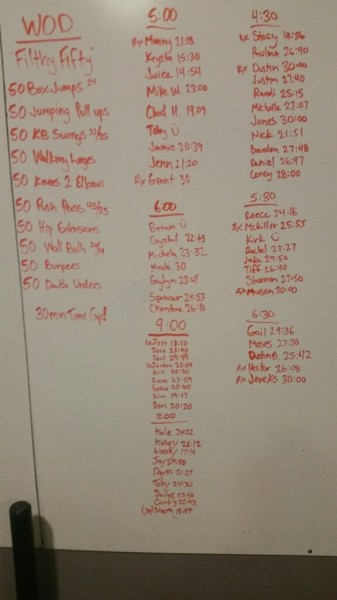 WOD
"Filthy Fifty"
50 Box Jumps 24
50 Jumping Pull ups
50 KB Swings 53/35
50 Walking Lunges
50 Knees 2 Elbows
50 Push Press 45/35
50 Hip Extensions
50 Wall Balls 20/14
50 Burpees
50 Double Unders
30 min Time Cap!
5:00
Rx Manny 21:18
Krysta 15:30
Juice 14:54
Mike W. 23:00
Chad H. 19:09
Toby
Jamie 20:39
Jenn 21:20
Rx Grant 30
6:00
Brown
Crystal 22:43
Michele 23:32
Nicole 30
23:41
Spencer 24:53
Christine
9:00
Jeff
Jose 23:40
Joel 29:59
Jordan 23:09
23:09
20:40
Kim 19:17
20:20
12:00
Kale 24:22
Kelsey 26:12
Woody
Jay
21:27
Toby 24:30
Curtis 22:43
4:30
Rx Stacy
Paulina 26:40
Rx Dustin 30:00
Justin 27:40
Randi 25:15
Michelle 27:07
Jones 30:00
Nick 21:51
Brandon 27:48
Daniel 26:47
Corey 28:00
5:30
Reece 24:16
Rx McKiller 25:55
Kirk
Rachel 27:27
Jake 29:50
Tiff 26:40
Shannon 27:50
Rx Mason 30:00
6:30
Gail 29:36
Mavs 27:30
Dustin B. 25:42
Rx Hector 26:08
Rx 30:00